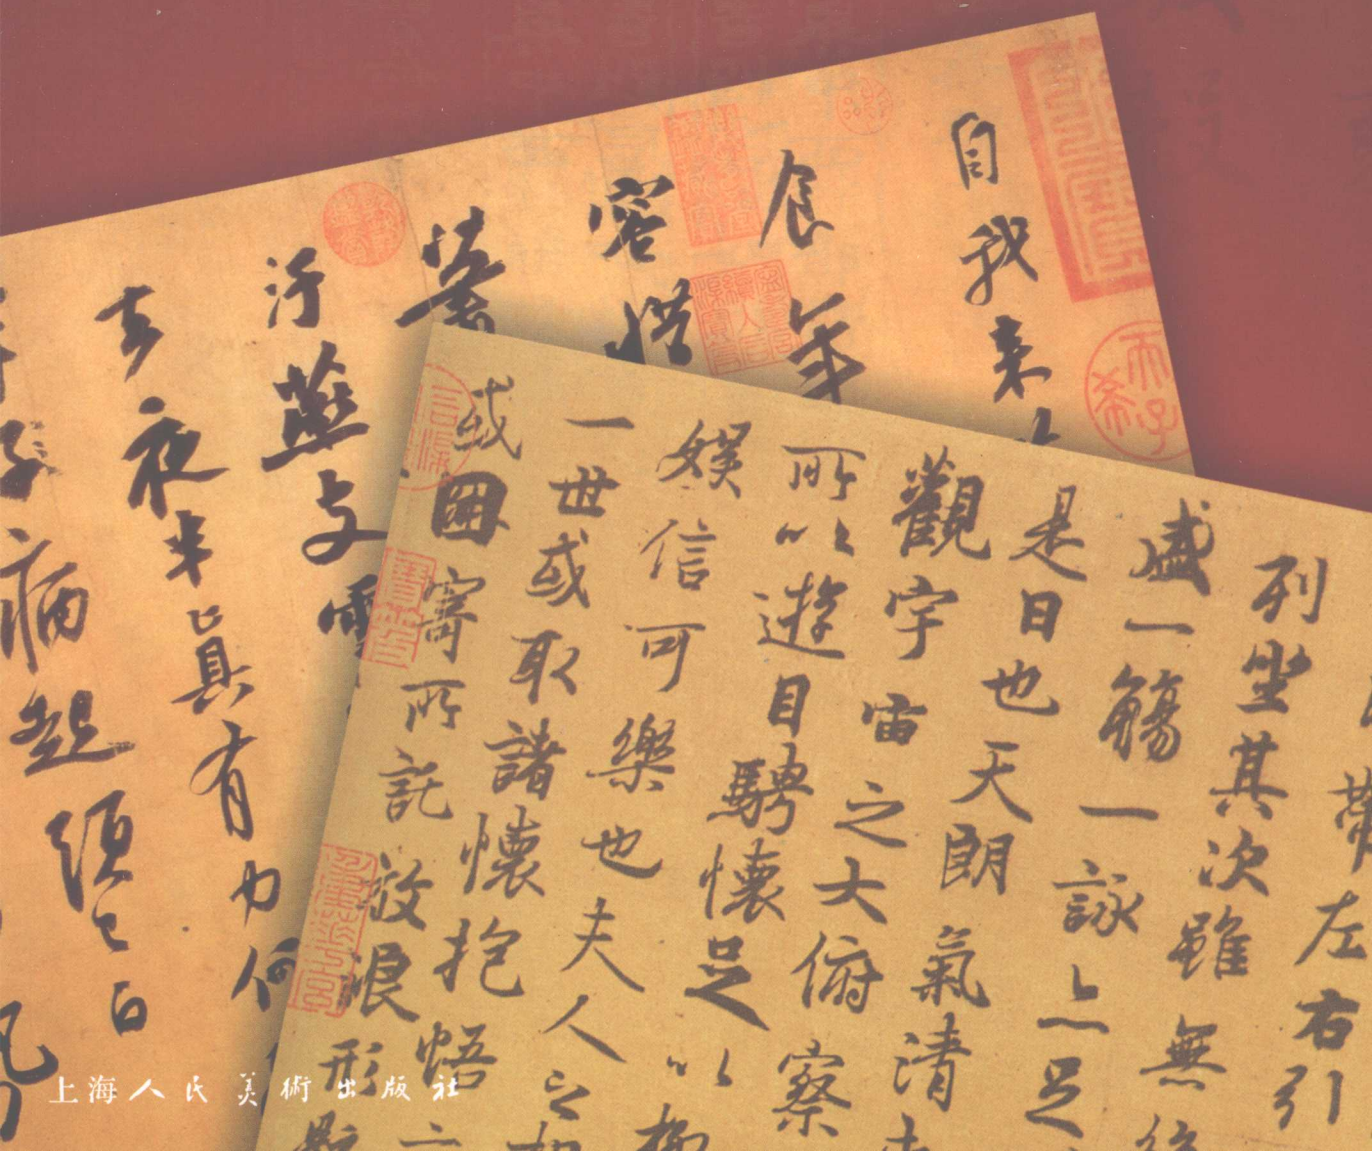 自我来
食年
容惜
著
汙燕支雪
去夜半真有力何
子病起須已白
帶左右引
列坐其次雖無
盛一觴一詠亦足
是日也天朗氣清
觀宇宙之大俯察
所以遊目騁懷足以
娛信可樂也夫人之
一世或取諸懷抱悟
或因寄所託放浪形
上海人民美術出版社